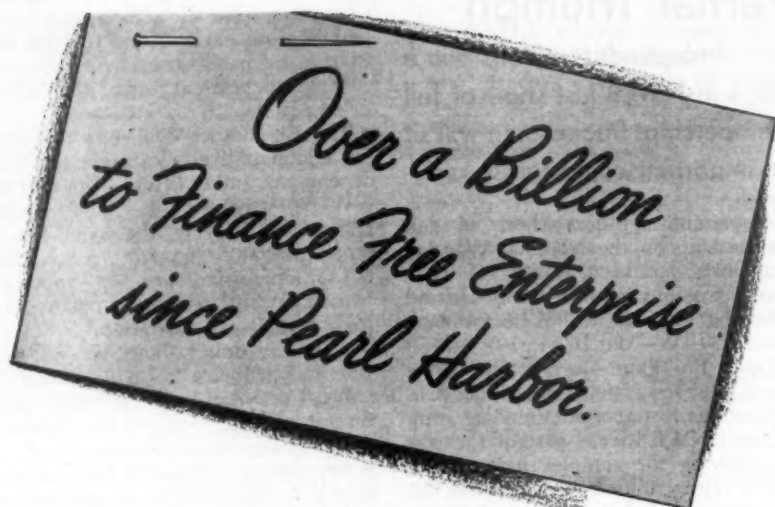 Over a Billion
to Finance Free Enterprise
since Pearl Harbor.